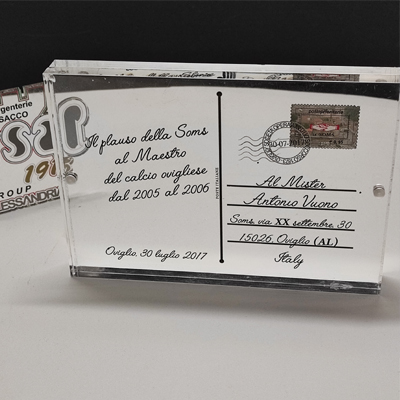 genterie
SACCO
sal
GROUP
Il plauso della Soms
al Maestro
del calcio ovigliese
dal 2005 al 2006
Oviglio, 30 luglio 2017
POSTE ITALIANE
Al Mister
Antonio Vuono
Soms, via XX settembre, 30
15026, Oviglio (AL)
Italy